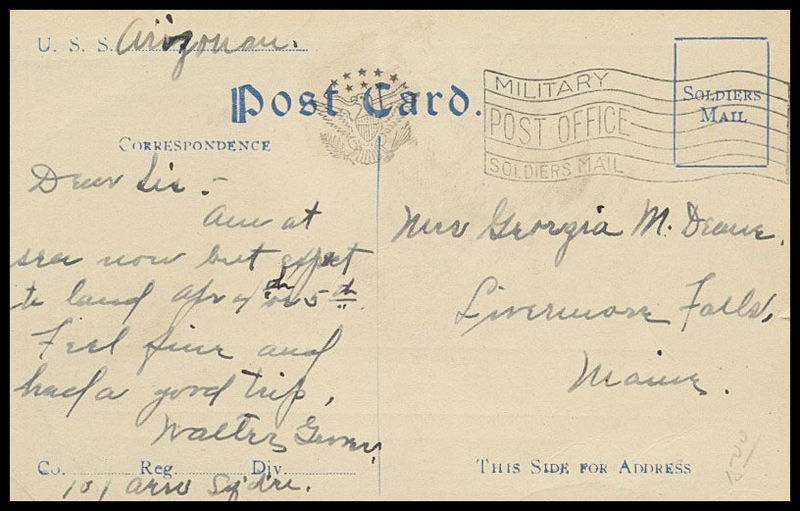 U. S. S. Arizonan.
Post Card.
MILITARY
POST OFFICE
SOLDIERS MAIL
SOLDIERS
MAIL
CORRESPONDENCE
Dear Sis:-
Am at
sea now but expect
to land Apr 4th or 5th.
Feel fine and
had a good trip,
Walter
Co. Reg. Div.
101 Aero Sqdrn.
Miss Georgia M. Deane,
Livermore Falls,
Maine.
THIS SIDE FOR ADDRESS